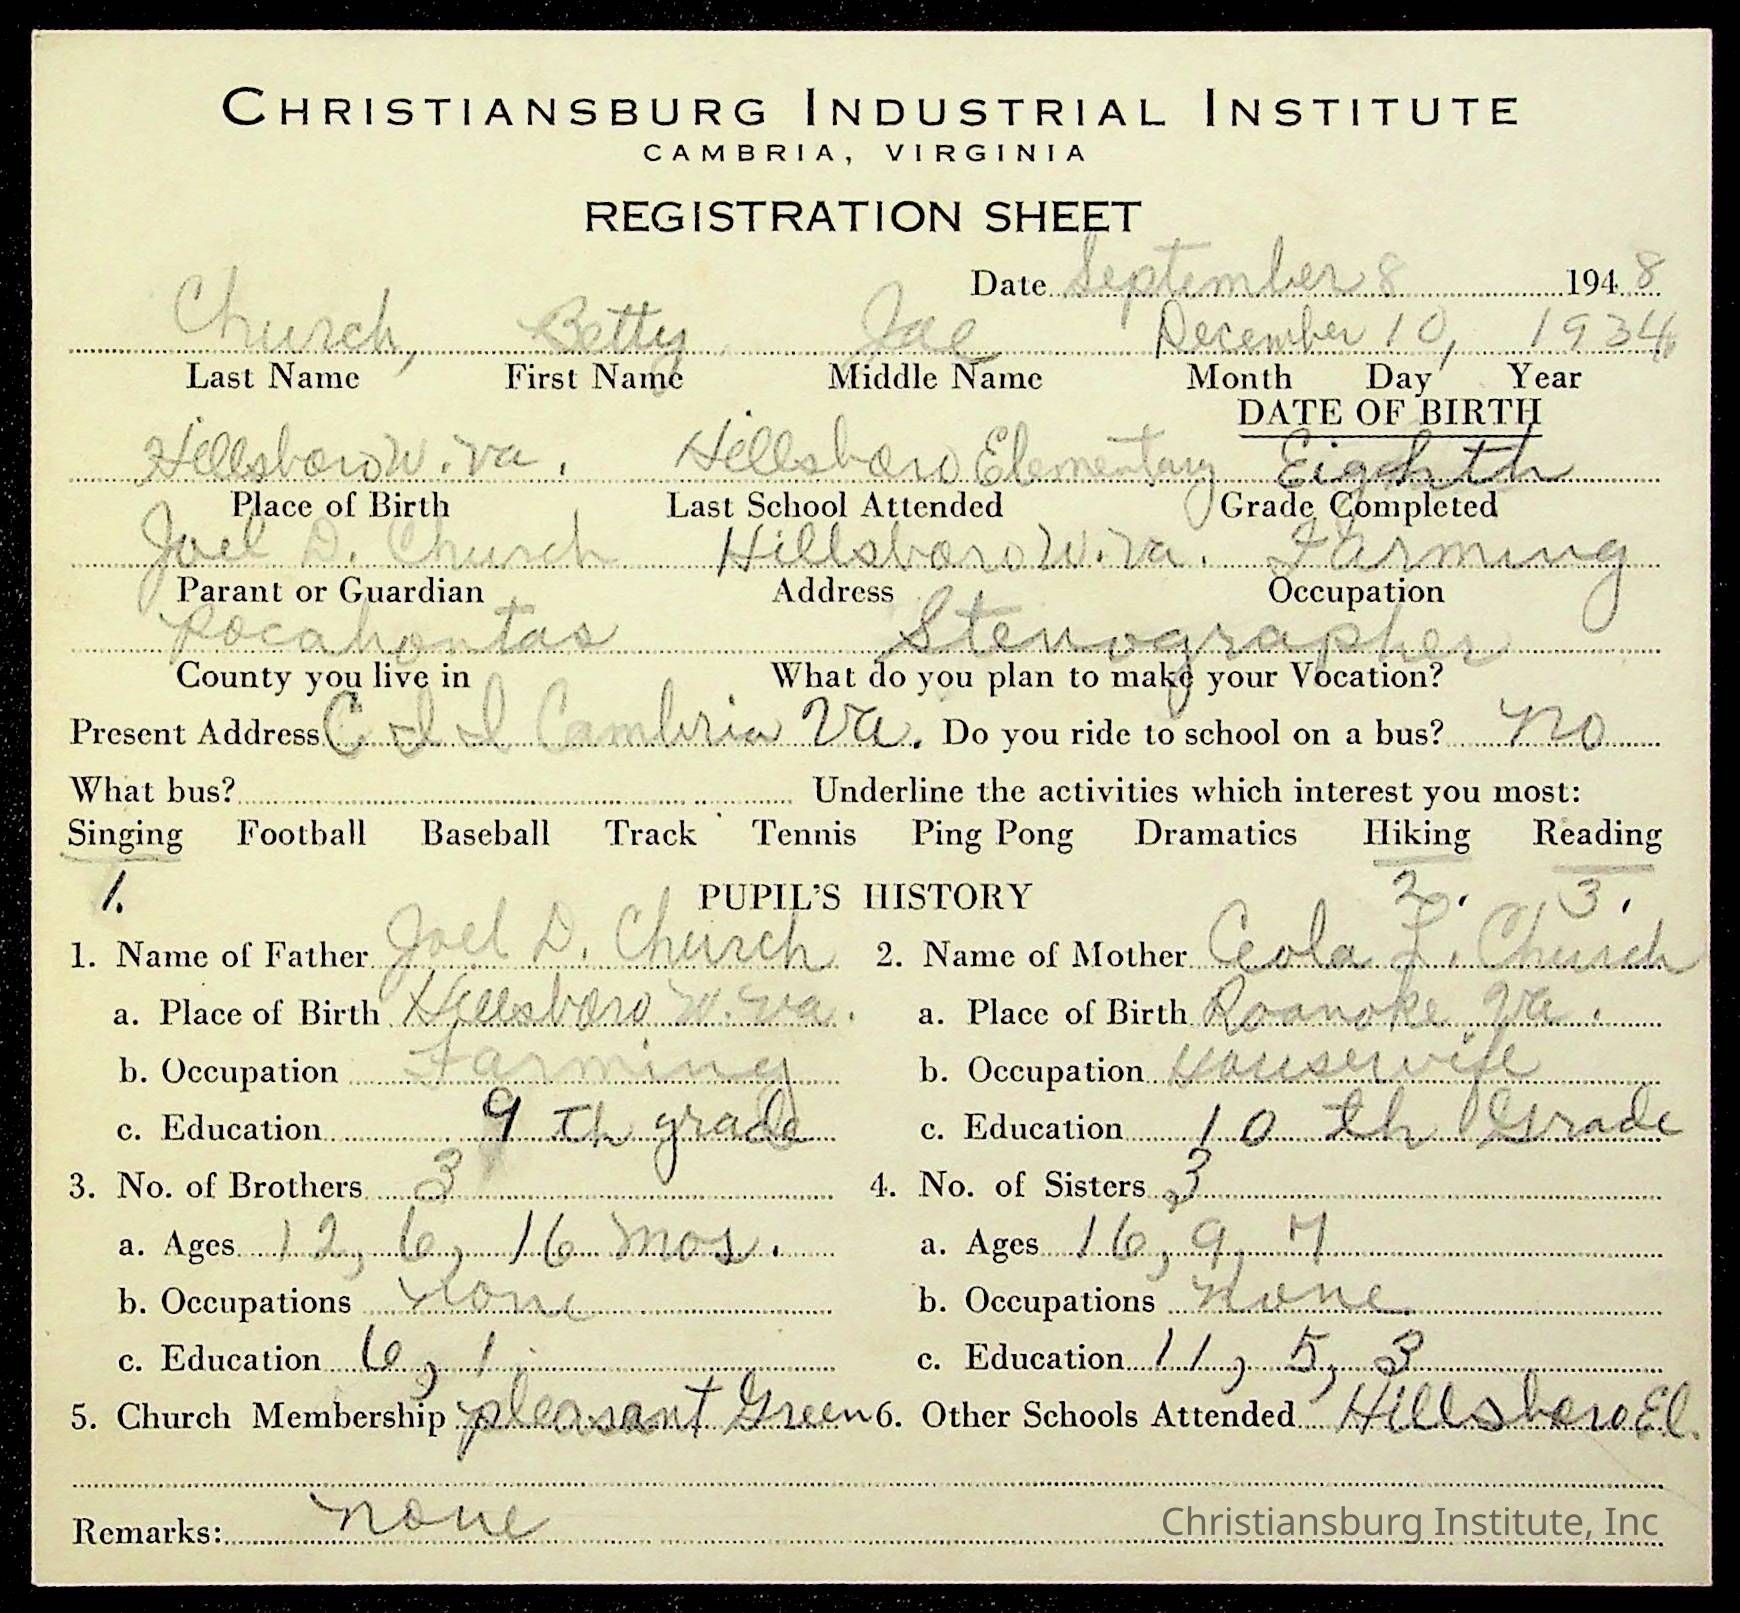 CHRISTIANSBURG INDUSTRIAL INSTITUTE
CAMBRIA, VIRGINIA
REGISTRATION SHEET
Date September 8 1948
Church, Betty Jae December 10, 1934
Last Name First Name Middle Name Month Day Year
DATE OF BIRTH
Hillsboro W. Va. Hillsboro Elementary Eighth
Place of Birth Last School Attended Grade Completed
Joel D. Church Hillsboro W. Va. Farming
Parant or Guardian Address Occupation
Pocahontas Stenographer
County you live in What do you plan to make your Vocation?
Present Address C I I Cambria Va. Do you ride to school on a bus? No
What bus? Underline the activities which interest you most:
Singing Football Baseball Track Tennis Ping Pong Dramatics Hiking Reading
1. 2. 3.
PUPIL'S HISTORY
1. Name of Father Joel D. Church 2. Name of Mother Ceola L. Church
a. Place of Birth Hillsboro W. Va. a. Place of Birth Roanoke Va.
b. Occupation Farming b. Occupation Housewife
c. Education 9 th grade c. Education 10 th Grade
3. No. of Brothers 3 4. No. of Sisters 3
a. Ages 12, 6, 16 mos. a. Ages 16, 9, 7
b. Occupations none b. Occupations none
c. Education 6, 1 c. Education 11, 5, 3
5. Church Membership pleasant Green 6. Other Schools Attended Hillsboro El.
Remarks: none
Christiansburg Institute, Inc